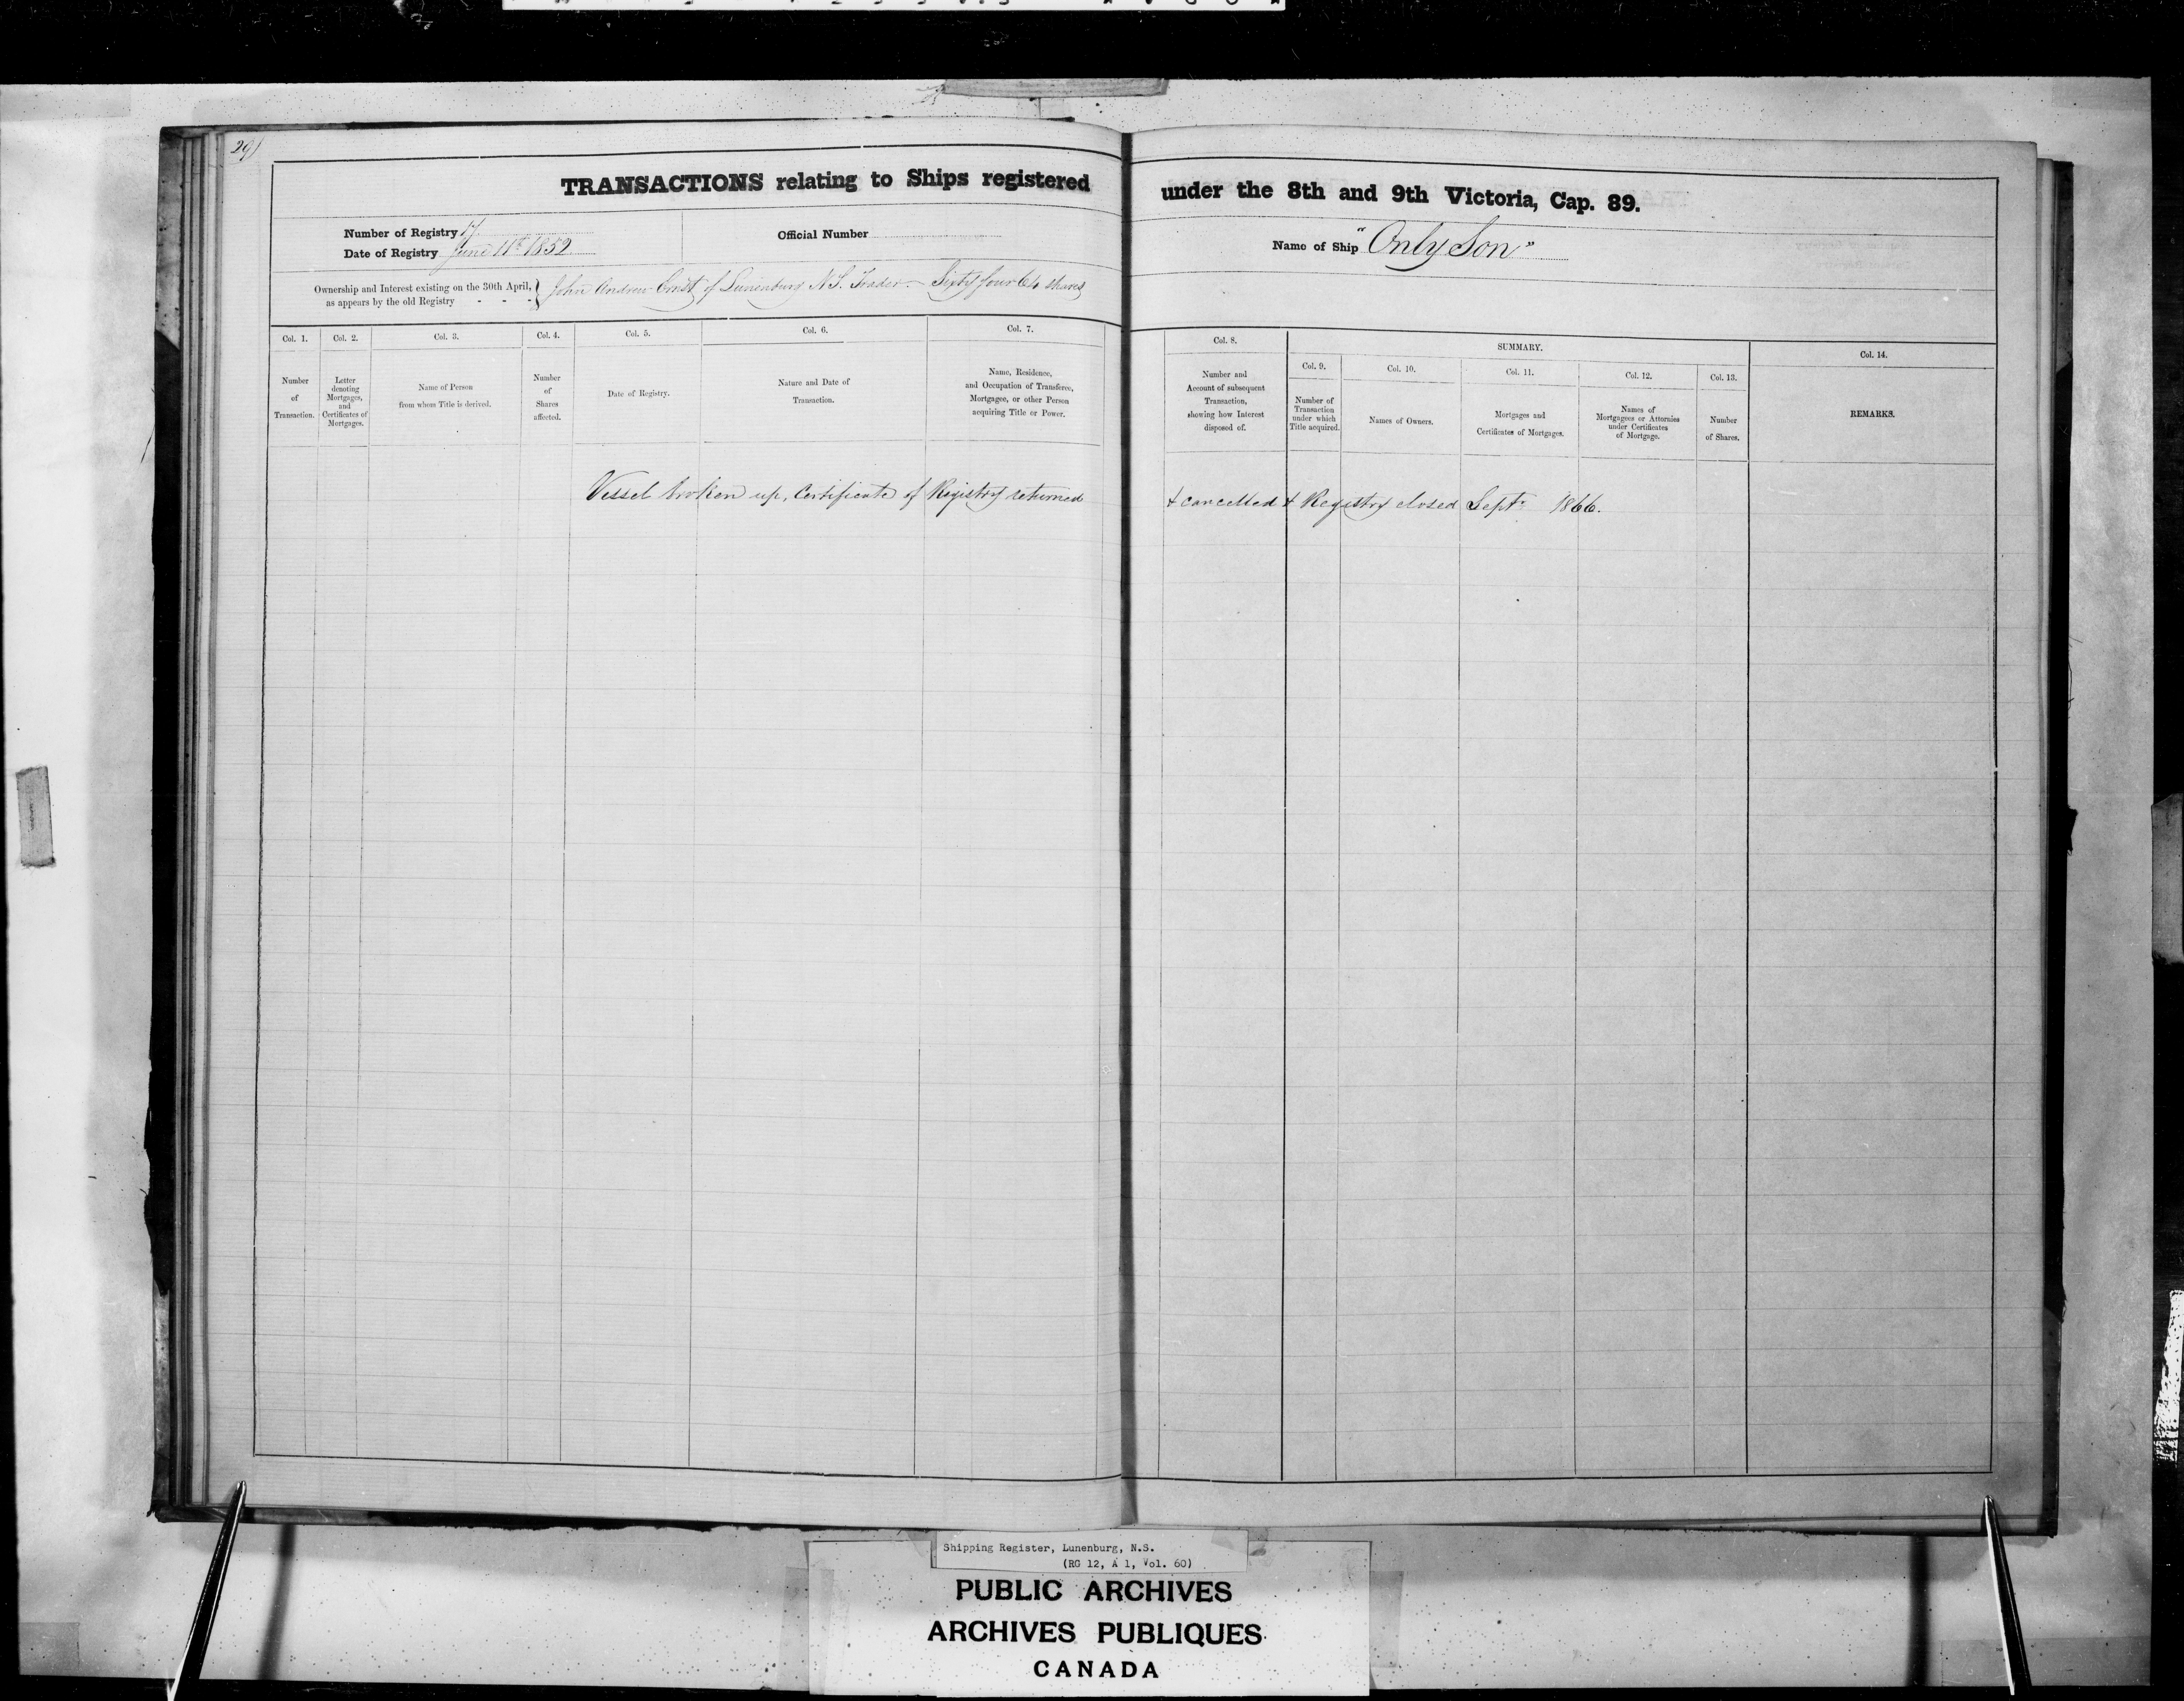 29)
TRANSACTIONS relating to Ships registered under the 8th and 9th Victoria, Cap. 89.
Number of Registry 17
Date of Registry June 11th 1852
Official Number
Name of Ship "Only Son"
Ownership and Interest existing on the 30th April, as appears by the old Registry - - - } John Andrew of Lunenburg N.S. Trader - Sixty four 64 shares
Col. 1.
Number
of
Transaction.
Col. 2.
Letter
denoting
Mortgages,
and
Certificates of
Mortgages.
Col. 3.
Name of Person
from whom Title is derived.
Col. 4.
Number
of
Shares
affected.
Col. 5.
Date of Registry.
Col. 6.
Nature and Date of
Transaction.
Col. 7.
Name, Residence,
and Occupation of Transferee,
Mortgagee, or other Person
acquiring Title or Power.
Col. 8.
Number and
Account of subsequent
Transaction,
showing how Interest
disposed of.
SUMMARY.
Col. 9.
Number of
Transaction
under which
Title acquired.
Col. 10.
Names of Owners.
Col. 11.
Mortgages and
Certificates of Mortgages.
Col. 12.
Names of
Mortgagees or Attornies
under Certificates
of Mortgage.
Col. 13.
Number
of Shares.
Col. 14.
REMARKS.
Vessel broken up, Certificate of Registry returned & cancelled & Registry closed Septr 1866.
Shipping Register, Lunenburg, N.S.
(RG 12, A 1, Vol. 60)
PUBLIC ARCHIVES
ARCHIVES PUBLIQUES
CANADA